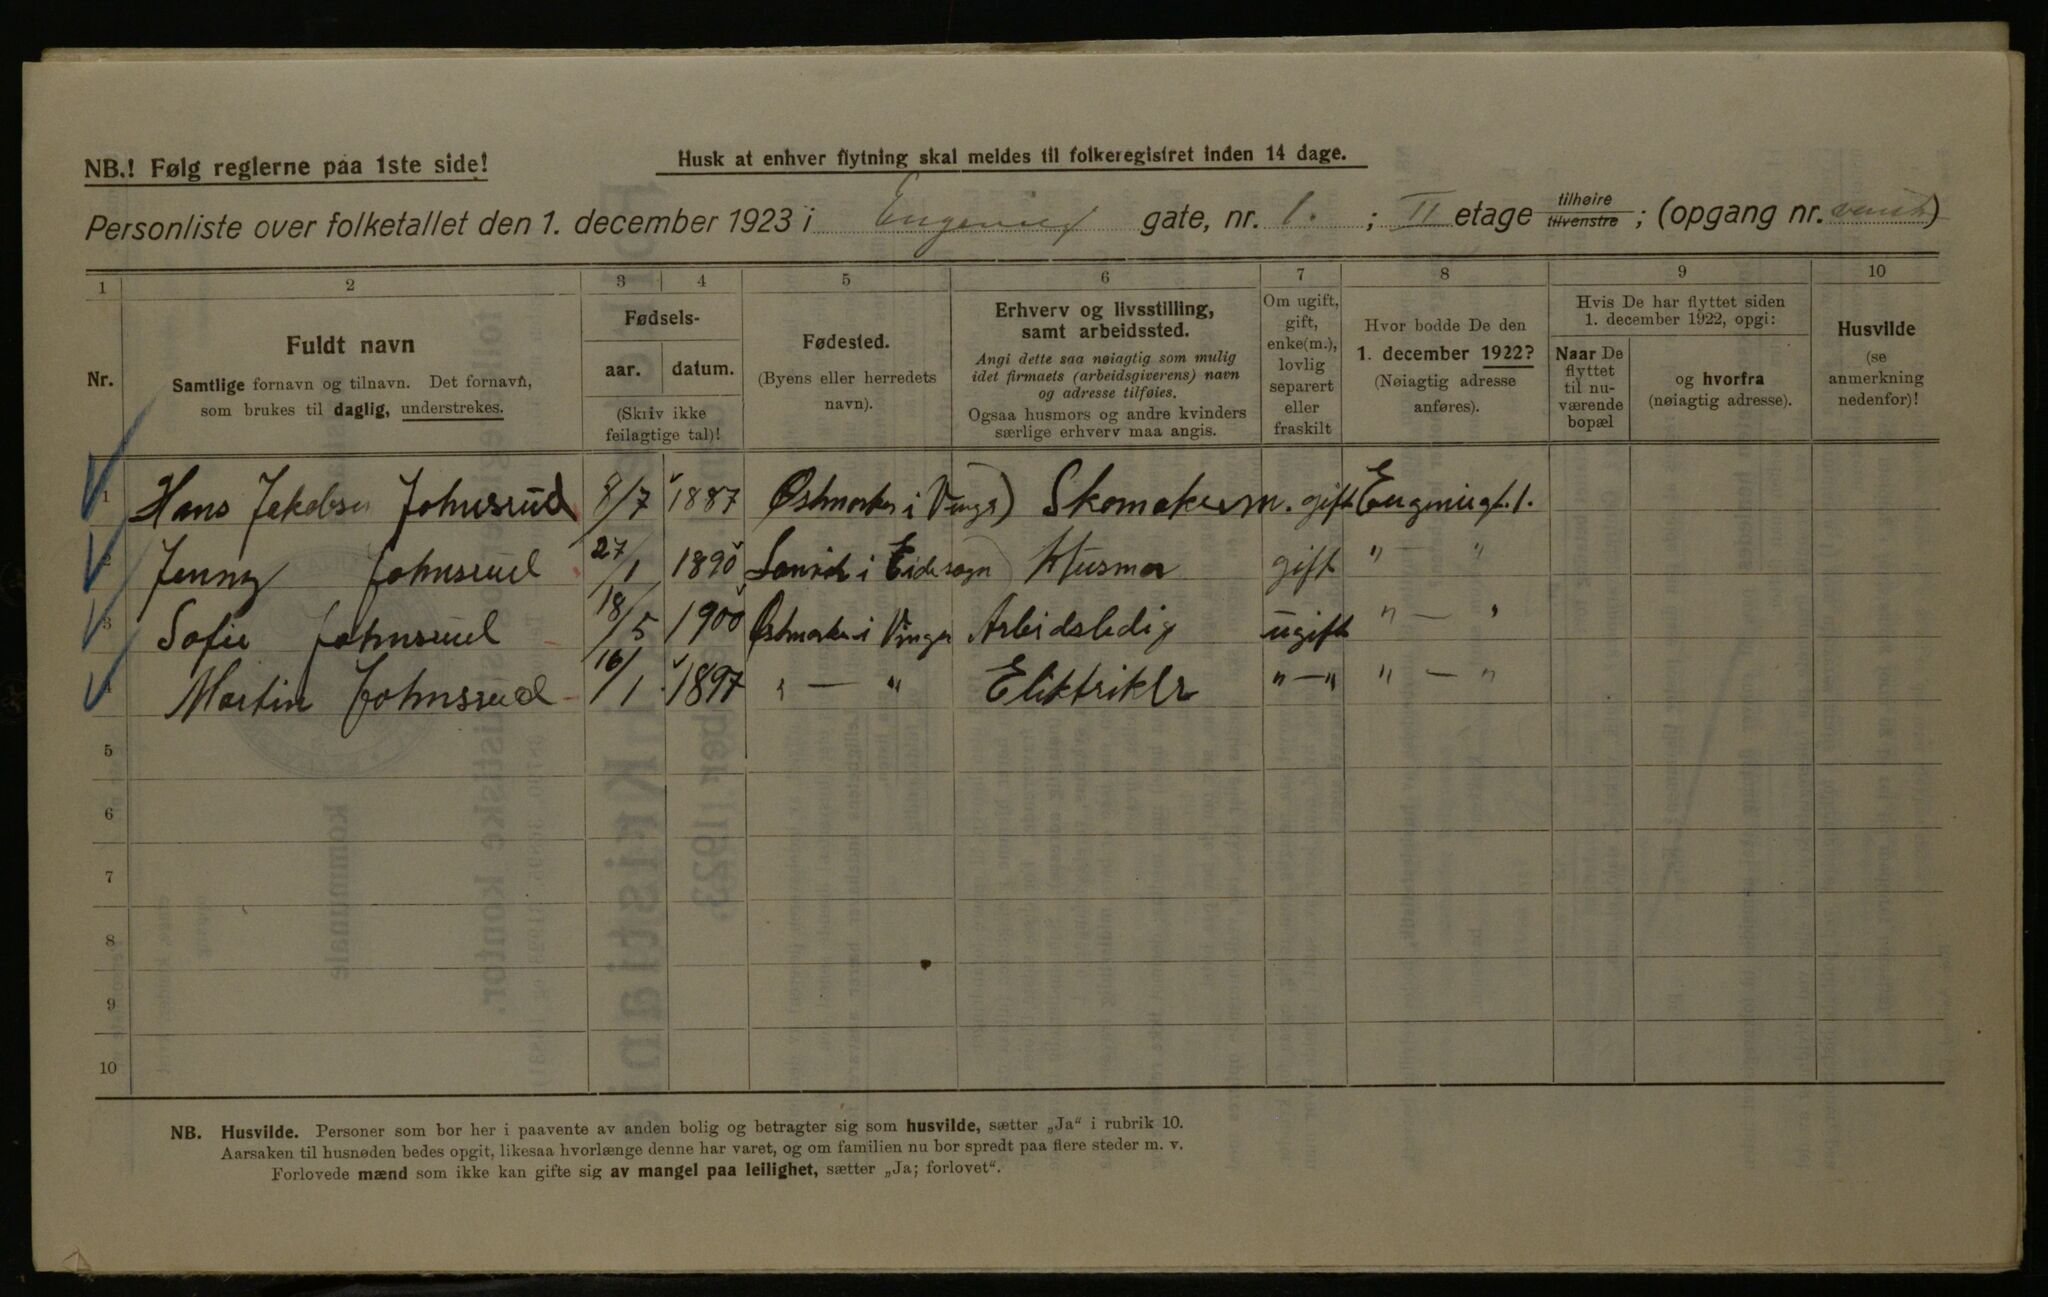 NB.! Følg reglerne paa 1ste side!
Husk at enhver flytning skal meldes til folkeregistret inden 14 dage.
Personliste over folketallet den 1. december 1923 i Eugenies gate, nr. 1. ; II etage tilhøire tilvenstre ; (opgang nr. )
1 2 3 4 5 6 7 8 9 10
Nr.
Fuldt navn
Samtlige fornavn og tilnavn. Det fornavn,
som brukes til daglig, understrekes.
Fødsels-
aar. datum.
(Skriv ikke
feilagtige tal)!
Fødested.
(Byens eller herredets
navn).
Erhverv og livsstilling,
samt arbeidssted.
Angi dette saa nøiagtig som mulig
idet firmaets (arbeidsgiverens) navn
og adresse tilføies.
Ogsaa husmors og andre kvinders
særlige erhverv maa angis.
Om ugift,
gift,
enke(m.),
lovlig
separert
eller
fraskilt
Hvor bodde De den
1. december 1922?
(Nøiagtig adresse
anføres).
Hvis De har flyttet siden
1. december 1922, opgi:
Naar De
flyttet
til nu-
værende
bopæl
og hvorfra
(nøiagtig adresse).
Husvilde
(se
anmerkning
nedenfor)!
1 Hans Jakobsen Johnsrud 8/7 1887 Østmarka i Vinger Skomakerm. gift Eugeniegt. 1.
2 Jenny Johnsrud 27/1 1890 i Eidsogn Husmor gift " — "
3 Sofie Johnsrud 18/5 1900 Østmarka i Vinger Arbeidsledig ugift " — "
4 Martin Johnsrud 16/1 1897 " — " Eliktriker " — " " — "
5
6
7
8
9
10
NB. Husvilde. Personer som bor her i paavente av anden bolig og betragter sig som husvilde, sætter „Ja“ i rubrik 10.
Aarsaken til husnøden bedes opgit, likesaa hvorlænge denne har varet, og om familien nu bor spredt paa flere steder m. v.
Forlovede mænd som ikke kan gifte sig av mangel paa leilighet, sætter „Ja; forlovet“.